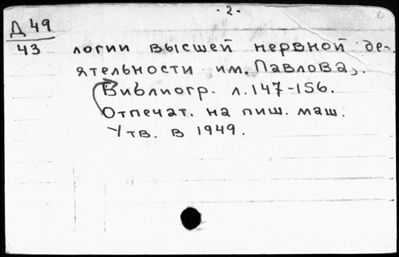 - 2 -
Д 49
43 логии высшей нервной де-
ятельности им. Павлова,.
Библиогр. л. 147-156.
Отпечат. на пиш. маш.
Утв. в 1949.